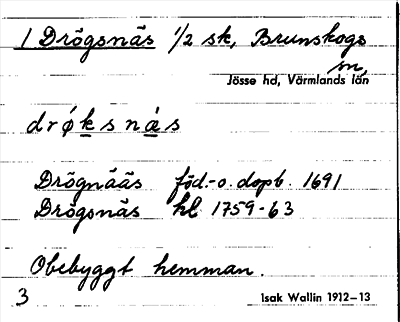 1 Drögsnäs 1/2 sk, Brunskogs
sn,
Jösse hd, Värmlands län
drǿksnás
Drögnääs föd.-o. dopb. 1691
Drögsnäs hl 1759-63
Obebyggt hemman.
3
Isak Wallin 1912–13